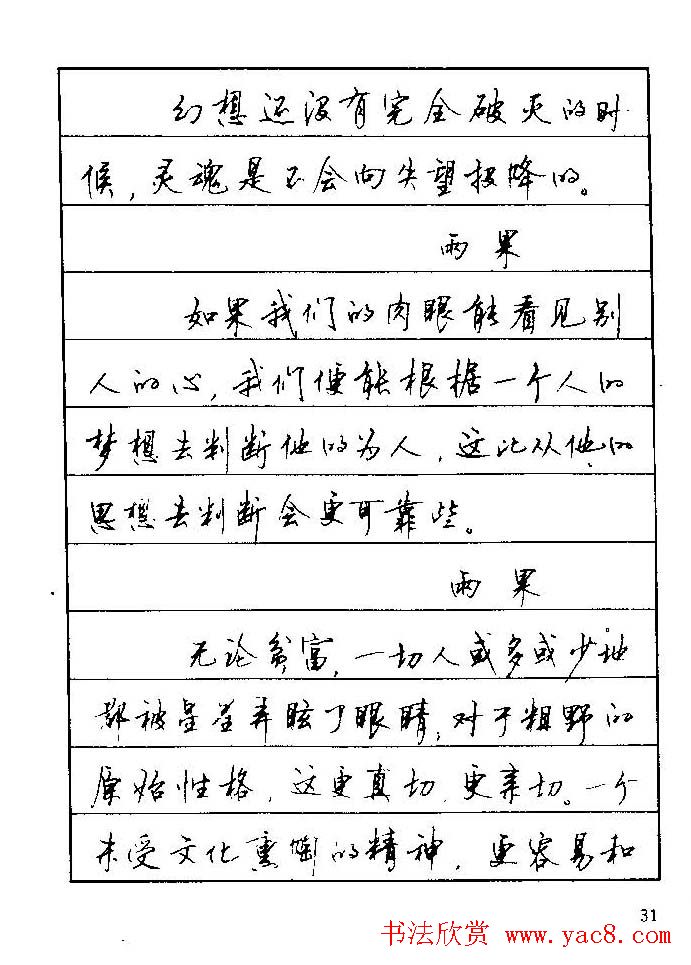 幻想还没有完全破灭的时
候，灵魂是不会向失望投降的。
雨果
如果我们的肉眼能看见别
人的心，我们便能根据一个人的
梦想去判断他的为人，这比从他的
思想去判断会更可靠些。
雨果
无论贫富，一切人或多或少地
都被星星弄眩了眼睛，对于粗野的
原始性格，这更真切，更亲切。一个
未受文化熏陶的精神，更容易和
31
书法欣赏 www.yac8.com